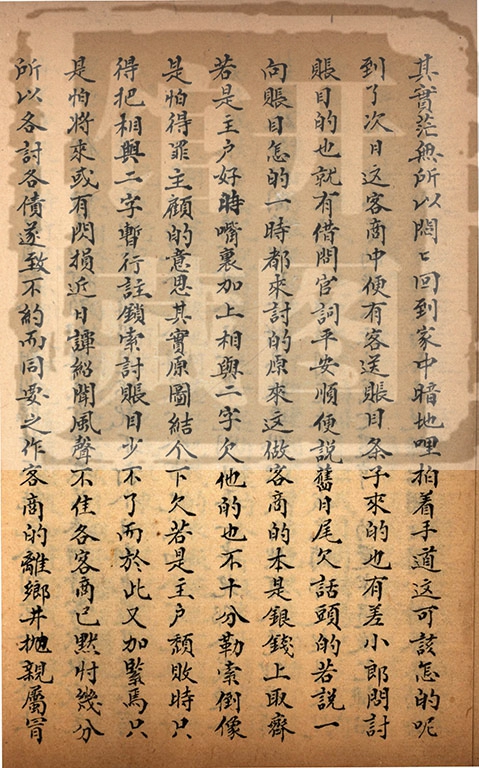 其實茫無所以悶々回到家中暗地哩拍着手道這可該怎的呢
到了次日这客商中便有客送賬目条子來的也有差小郎問討
賬目的也就有借問官詞平安順便説舊日尾欠話頭的若説一
向賬目怎的一時都來討的原來这做客商的本是銀錢上取齊
若是主户好時嘴裏加上相與二字欠他的也不十分勒索倒像
是怕得罪主顧的意思其實原圖結个下欠若是主户頹敗時只
得把相與二字暫行註鎖索討賬目少不了而於此又加緊焉只
是怕將來或有閃損近日譚紹聞風聲不佳各客商已黙忖幾分
所以各討各債遂致不約而同要之作客商的離鄉井抛親屬冒